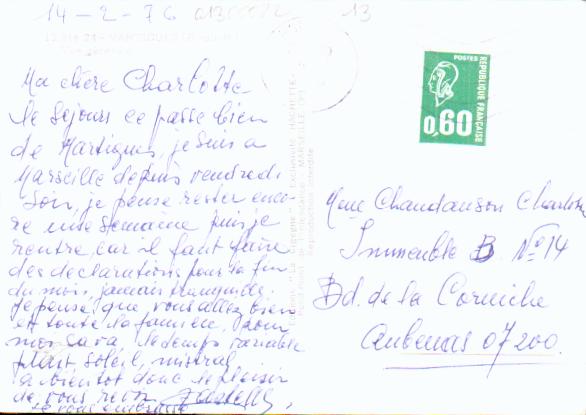 14-2-76
13
Ma chère Charlotte
le séjours ce passe bien
de Martigues, je suis a
Marseille depuis vendredi
soir, je pense rester enco-
re une semaine puis je
rentre, car il faut faire
des declarations pour la fin
du mois, jamais tranquille.
je pense que vous allez bien
et toute la famille, pour
moi ça va, le temps variable
pluit soleil, mistral
a bientôt donc le plaisir
de vous revoir
je vous embrasse
POSTES
REPUBLIQUE FRANÇAISE
0,60
Mme Chaudanson Charlotte
Immeuble B N° 14
Bd. de la Corniche
Aubenas 07200.